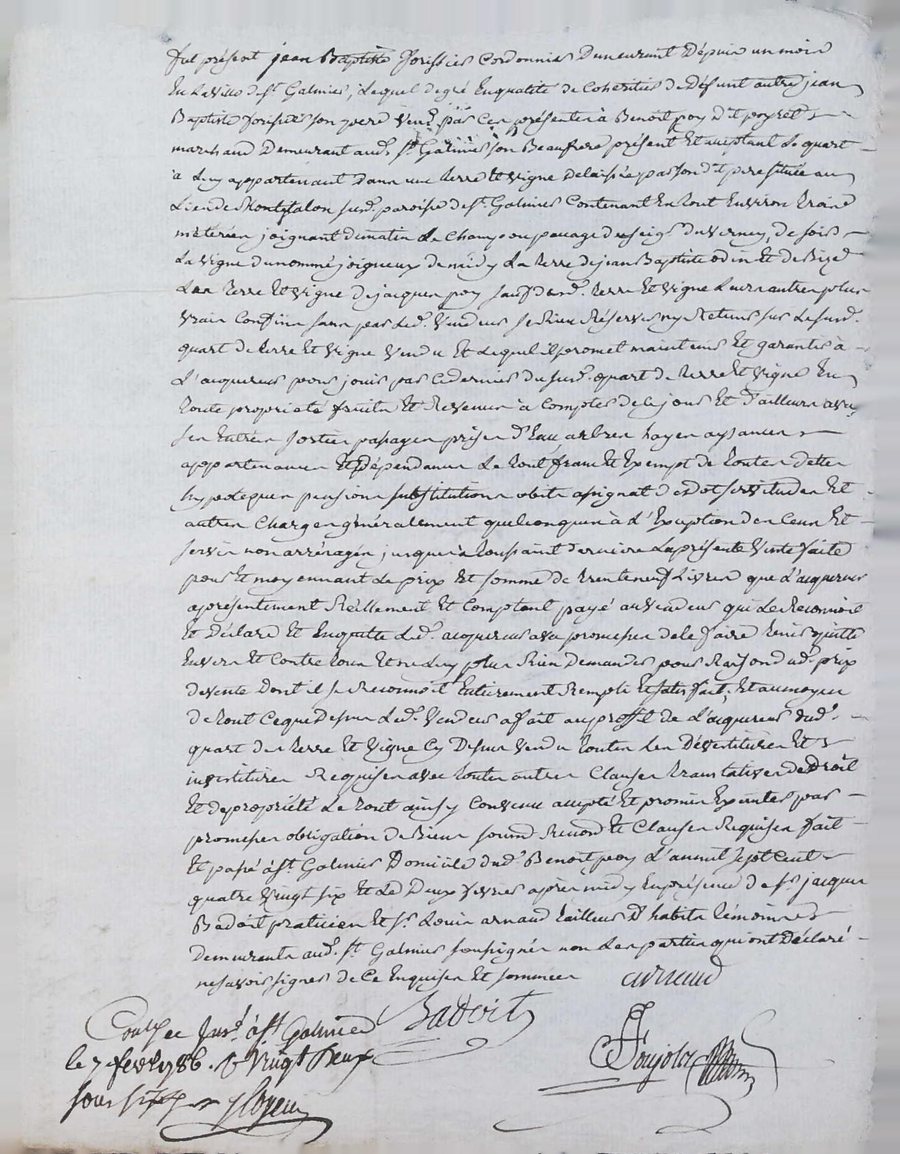 fut présent jean Baptiste forissier Cordonnier Demeurant Depuis un mois
En La Ville de St. Galmier, Lequel de gré En qualité de Coheritier de Défunt autre jean
Baptiste forissier son pere Vend par Ces présentes à Benoit poy dit poyet
marchand Demeurant aud. St. Galmier son Beaufrere présent Et aceptant Le quart
à Luy appartenant Dans une terre Et Vigne Delaissée par son dit pere située au
Lieu de Montfalon sus. paroisse de St. Galmier Contenant En tout Environ trois
méterées joignant de matin Le Champ ou paccage du seigr. du Verney, de soir
La Vigne du nommé joigneux de midy La terre de jean Baptiste odin Et de Bize
Les terre Et Vigne de jacques poy sauf desd. terre Et Vigne Leurs autres plus
Vrais Confins sans par Led. Vendeur se Rien Réserver ny Retenir sur Le susd.
quart de terre Et Vigne Vendu Et Lequel il promet maintenir Et garantir à
L'acquereur pour jouir par Ce dernier du susd. quart de terre Et Vigne En
toute propriété fruits Et Revenus à Compter de Ce jour Et D'ailleurs avec
ses Entrées sorties passages prises D'Eau arbres hayes aysances
appartenances Et Dépendances Le tout franc Et Exempt de toutes dettes
hypoteques pensions substitutions obits assignat de dot servitudes Et
autres Charges généralement quelconques à L'Exception des Cens Et
servis non arréragés jusques à toussaint derniere La présente Vente faite
pour Et moyennant Le prix Et somme de trente neuf Livres que L'acquereur
a présentement Réellement Et Comptant payé au Vendeur qui Le Reconnoit
Et Déclare Et En quitte Led. acquereur avec promesse de Le faire tenir quitte
Envers Et Contre tous Et ne Luy plus Rien Demander pour Raison dud. prix
de Vente Dont il se Reconnoit Entierement Rempli Et satisfait, Et au moyen
de tout Ce que Dessus Led. Vendeur a fait au profit de L'acquereur dud.
quart des terre Et Vigne Cy Dessus Vendu toutes Les Dévestitures Et
investitures Requises avec toutes autres Clauses translatives de Droit
Et de propriété Le tout ainsy Convenu accepté Et promis Exécuter par
promesses obligation de Biens soumd. Renond. Et Clauses Requises fait
Et passé à St. Galmier Domicile dud. Benoit poy L'an mil sept Cent
quatre Vingt six Et Le Deux fevrier après midy En présence de Sr. jacques
Badoit praticien Et Sr. Louis arnaud tailleur D'habits témoins
demeurants aud. St. Galmier soussignés non Les parties qui ont Déclaré
ne savoir signer de Ce Enquises Et sommées arnaud
Badoit
Foujols
Contlé. Ins. à St. Galmier
le 7 fevr. 1786. R. Vingt Deux
sous six